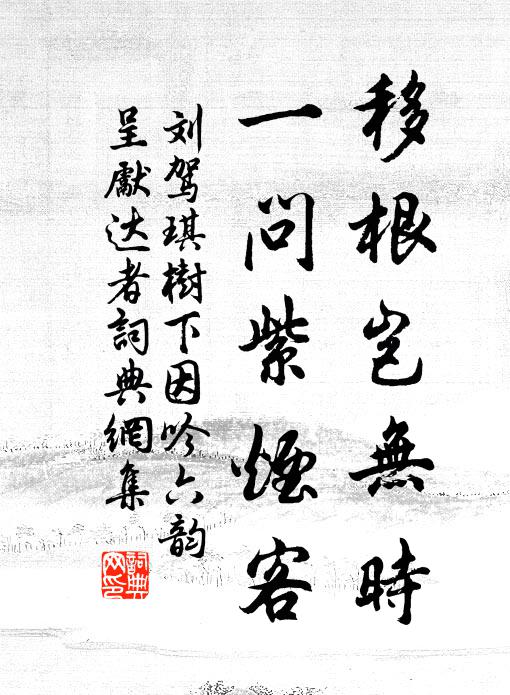 移根岂無時
一问紫煙客
刘驾琪樹下因吟六韵
呈獻达者詞典網集
詞典网印